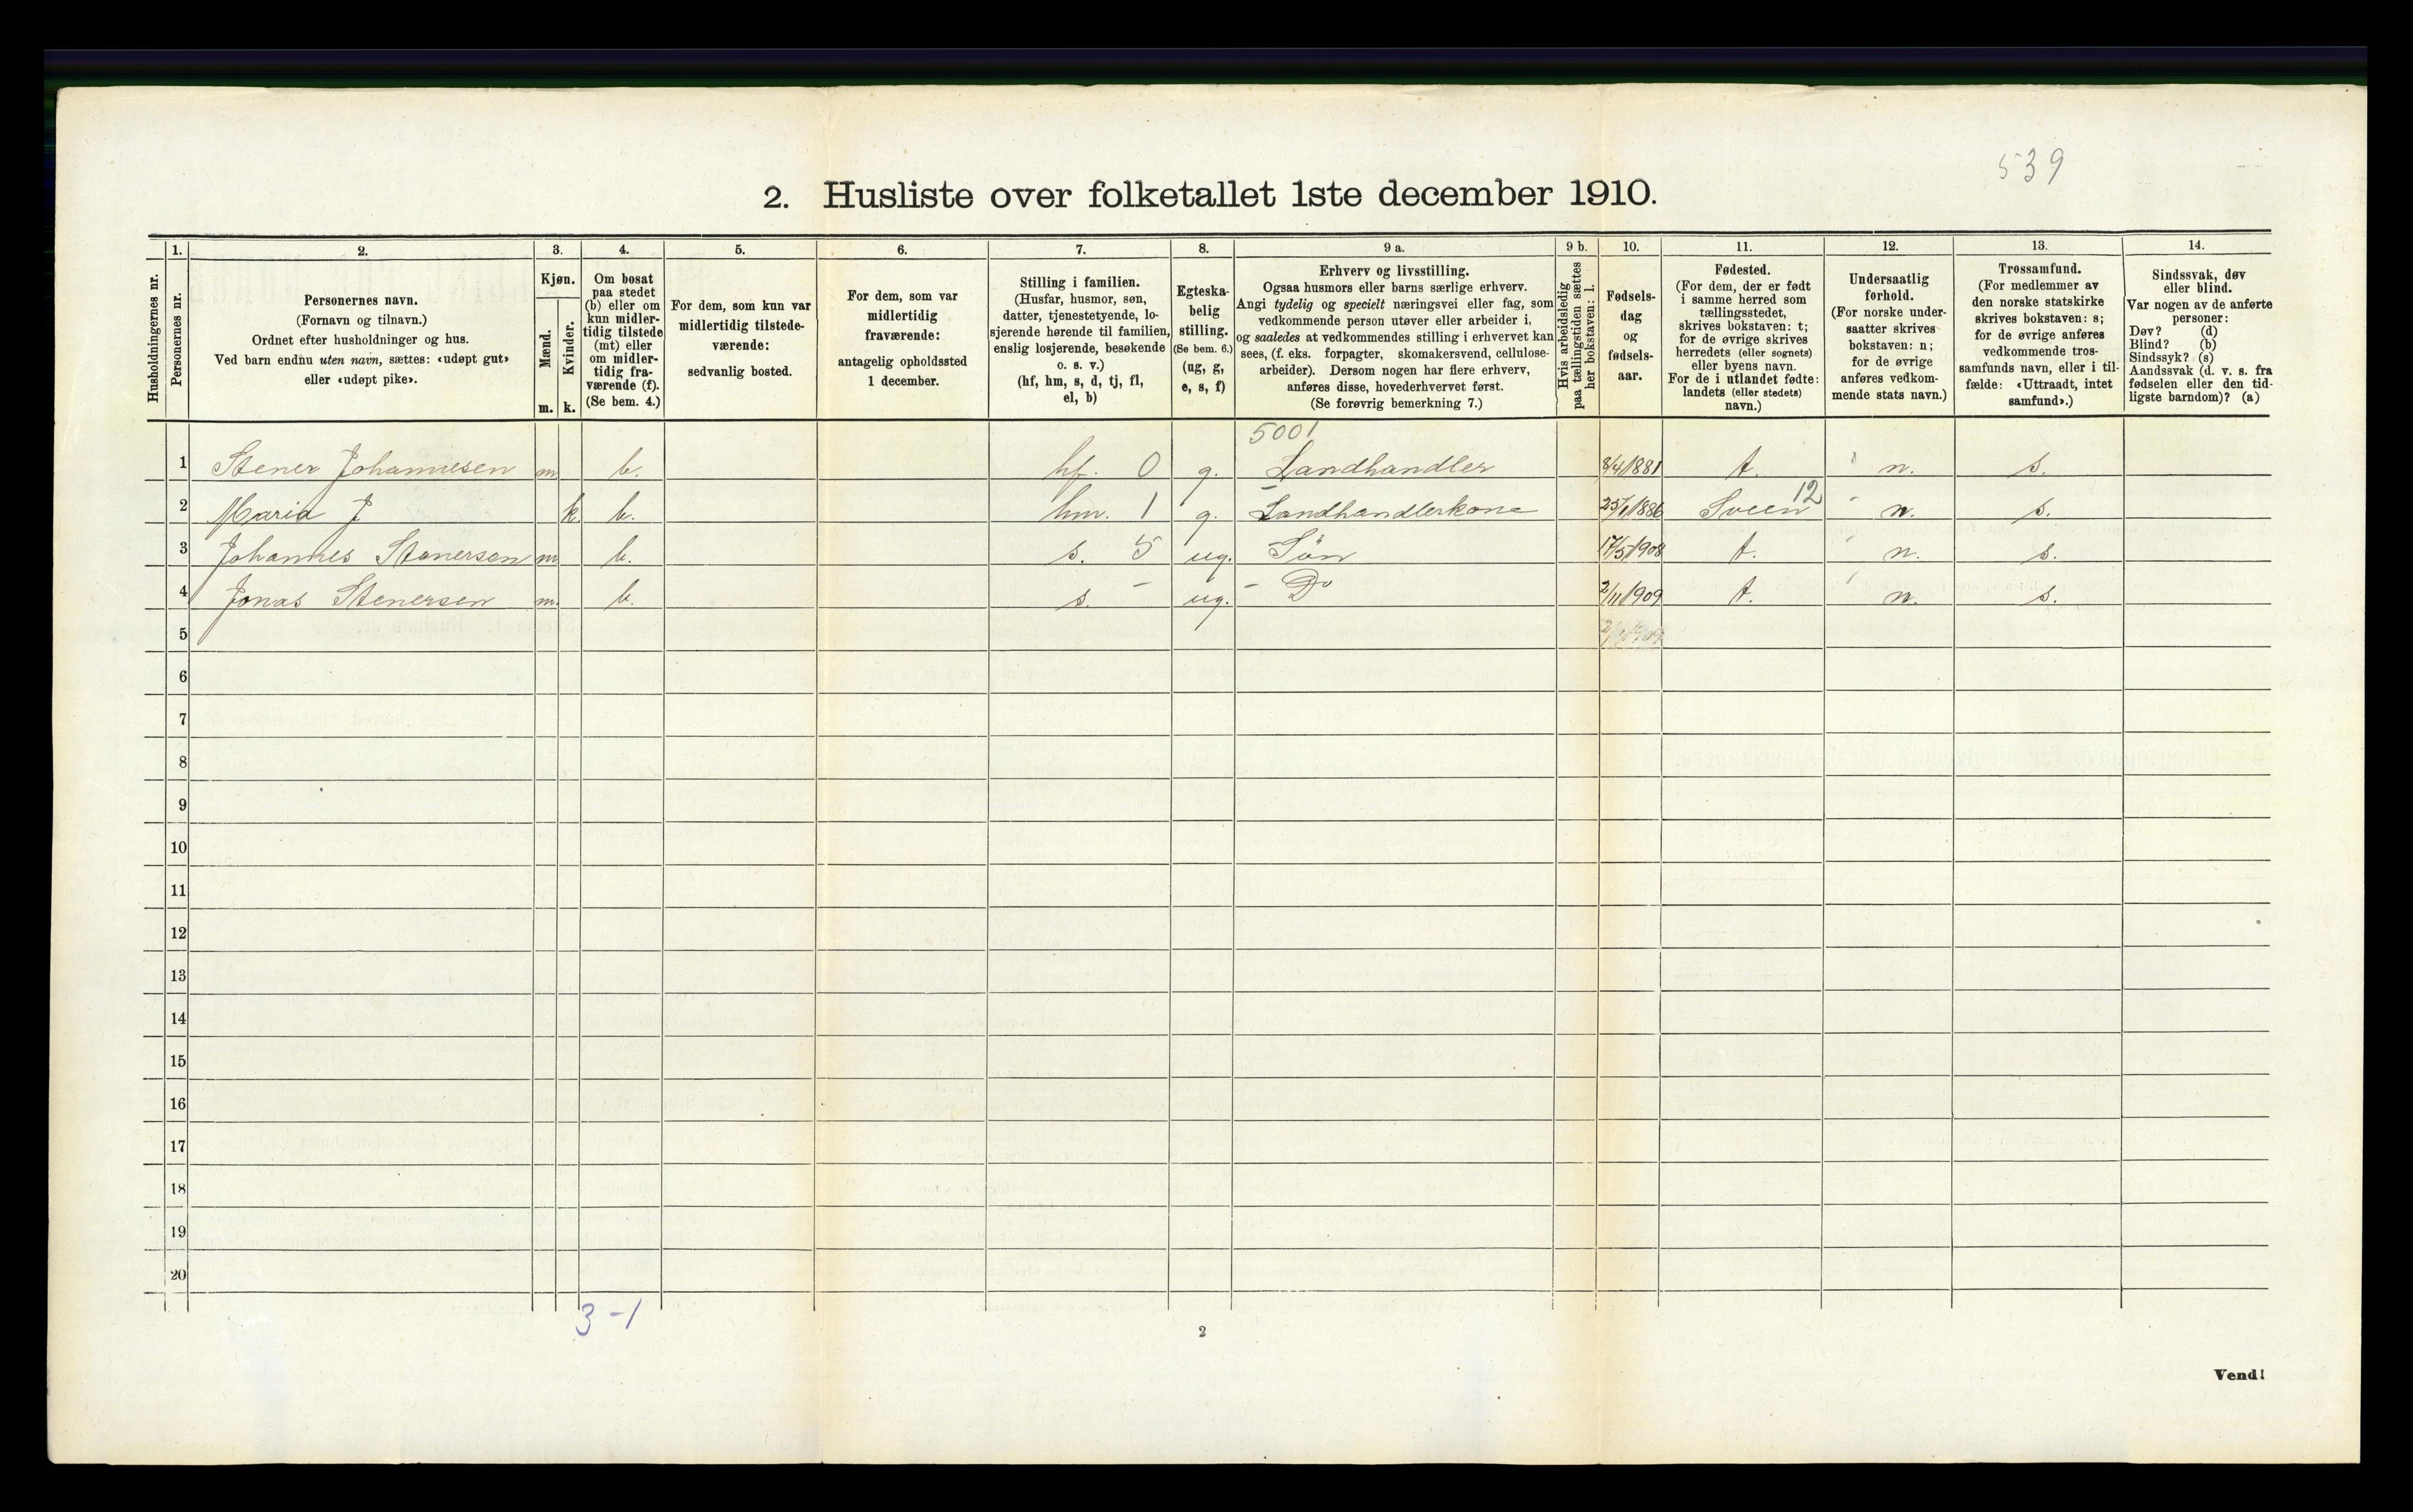 539
2. Husliste over folketallet 1ste december 1910.
Husholdningernes nr.
1.
Personernes nr.
2.
Personernes navn.
(Fornavn og tilnavn.)
Ordnet efter husholdninger og hus.
Ved barn endnu uten navn, sættes: «udøpt gut»
eller «udøpt pike».
3.
Kjøn.
Mænd.
Kvinder.
m. k.
4.
Om bosat
paa stedet
(b) eller om
kun midler-
tidig tilstede
(mt) eller
om midler-
tidig fra-
værende (f).
(Se bem. 4.)
5.
For dem, som kun var
midlertidig tilstede-
værende:
sedvanlig bosted.
6.
For dem, som var
midlertidig
fraværende:
antagelig opholdssted
1 december.
7.
Stilling i familien.
(Husfar, husmor, søn,
datter, tjenestetyende, lo-
sjerende hørende til familien,
enslig losjerende, besøkende
o. s. v.)
(hf, hm, s, d, tj, fl,
el, b)
8.
Egteska-
belig
stilling.
(Se bem. 6.)
(ug, g,
e, s, f)
9 a.
Erhverv og livsstilling.
Ogsaa husmors eller barns særlige erhverv.
Angi tydelig og specielt næringsvei eller fag, som
vedkommende person utøver eller arbeider i,
og saaledes at vedkommendes stilling i erhvervet kan
sees, (f. eks. forpagter, skomakersvend, cellulose-
arbeider). Dersom nogen har flere erhverv,
anføres disse, hovederhvervet først.
(Se forøvrig bemerkning 7.)
9 b.
Hvis arbeidsledig
paa tællingstiden sættes
her bokstaven: l.
10.
Fødsels-
dag
og
fødsels-
aar.
11.
Fødested.
(For dem, der er født
i samme herred som
tællingsstedet,
skrives bokstaven: t;
for de øvrige skrives
herredets (eller sognets)
eller byens navn.
For de i utlandet fødte:
landets (eller stedets)
navn.)
12.
Undersaatlig
forhold.
(For norske under-
saatter skrives
bokstaven: n;
for de øvrige
anføres vedkom-
mende stats navn.)
13.
Trossamfund.
(For medlemmer av
den norske statskirke
skrives bokstaven: s;
for de øvrige anføres
vedkommende tros-
samfunds navn, eller i til-
fælde: «Uttraadt, intet
samfund».)
14.
Sindssvak, døv
eller blind.
Var nogen av de anførte
personer:
Døv? (d)
Blind? (b)
Sindssyk? (s)
Aandssvak (d. v. s. fra
fødselen eller den tid-
ligste barndom)? (a)
5001
1 Stener Johannesen m b. hf. 0 g. Landhandler 8/4 1881 t. n. s.
12
2 Maria J k. b. hm. 1 g. Landhandlerkone 25/1 1886 Sveen n. s.
3 Johannes Stenersen m b. s. 5 ug. Sön 17/5 1908 t. n. s.
4 Jonas Stenersen m. b. s. - ug. - Do 2/11 1909 t. n. s.
5
6
7
8
9
10
11
12
13
14
15
16
17
18
19
20
3-1
2
Vend!